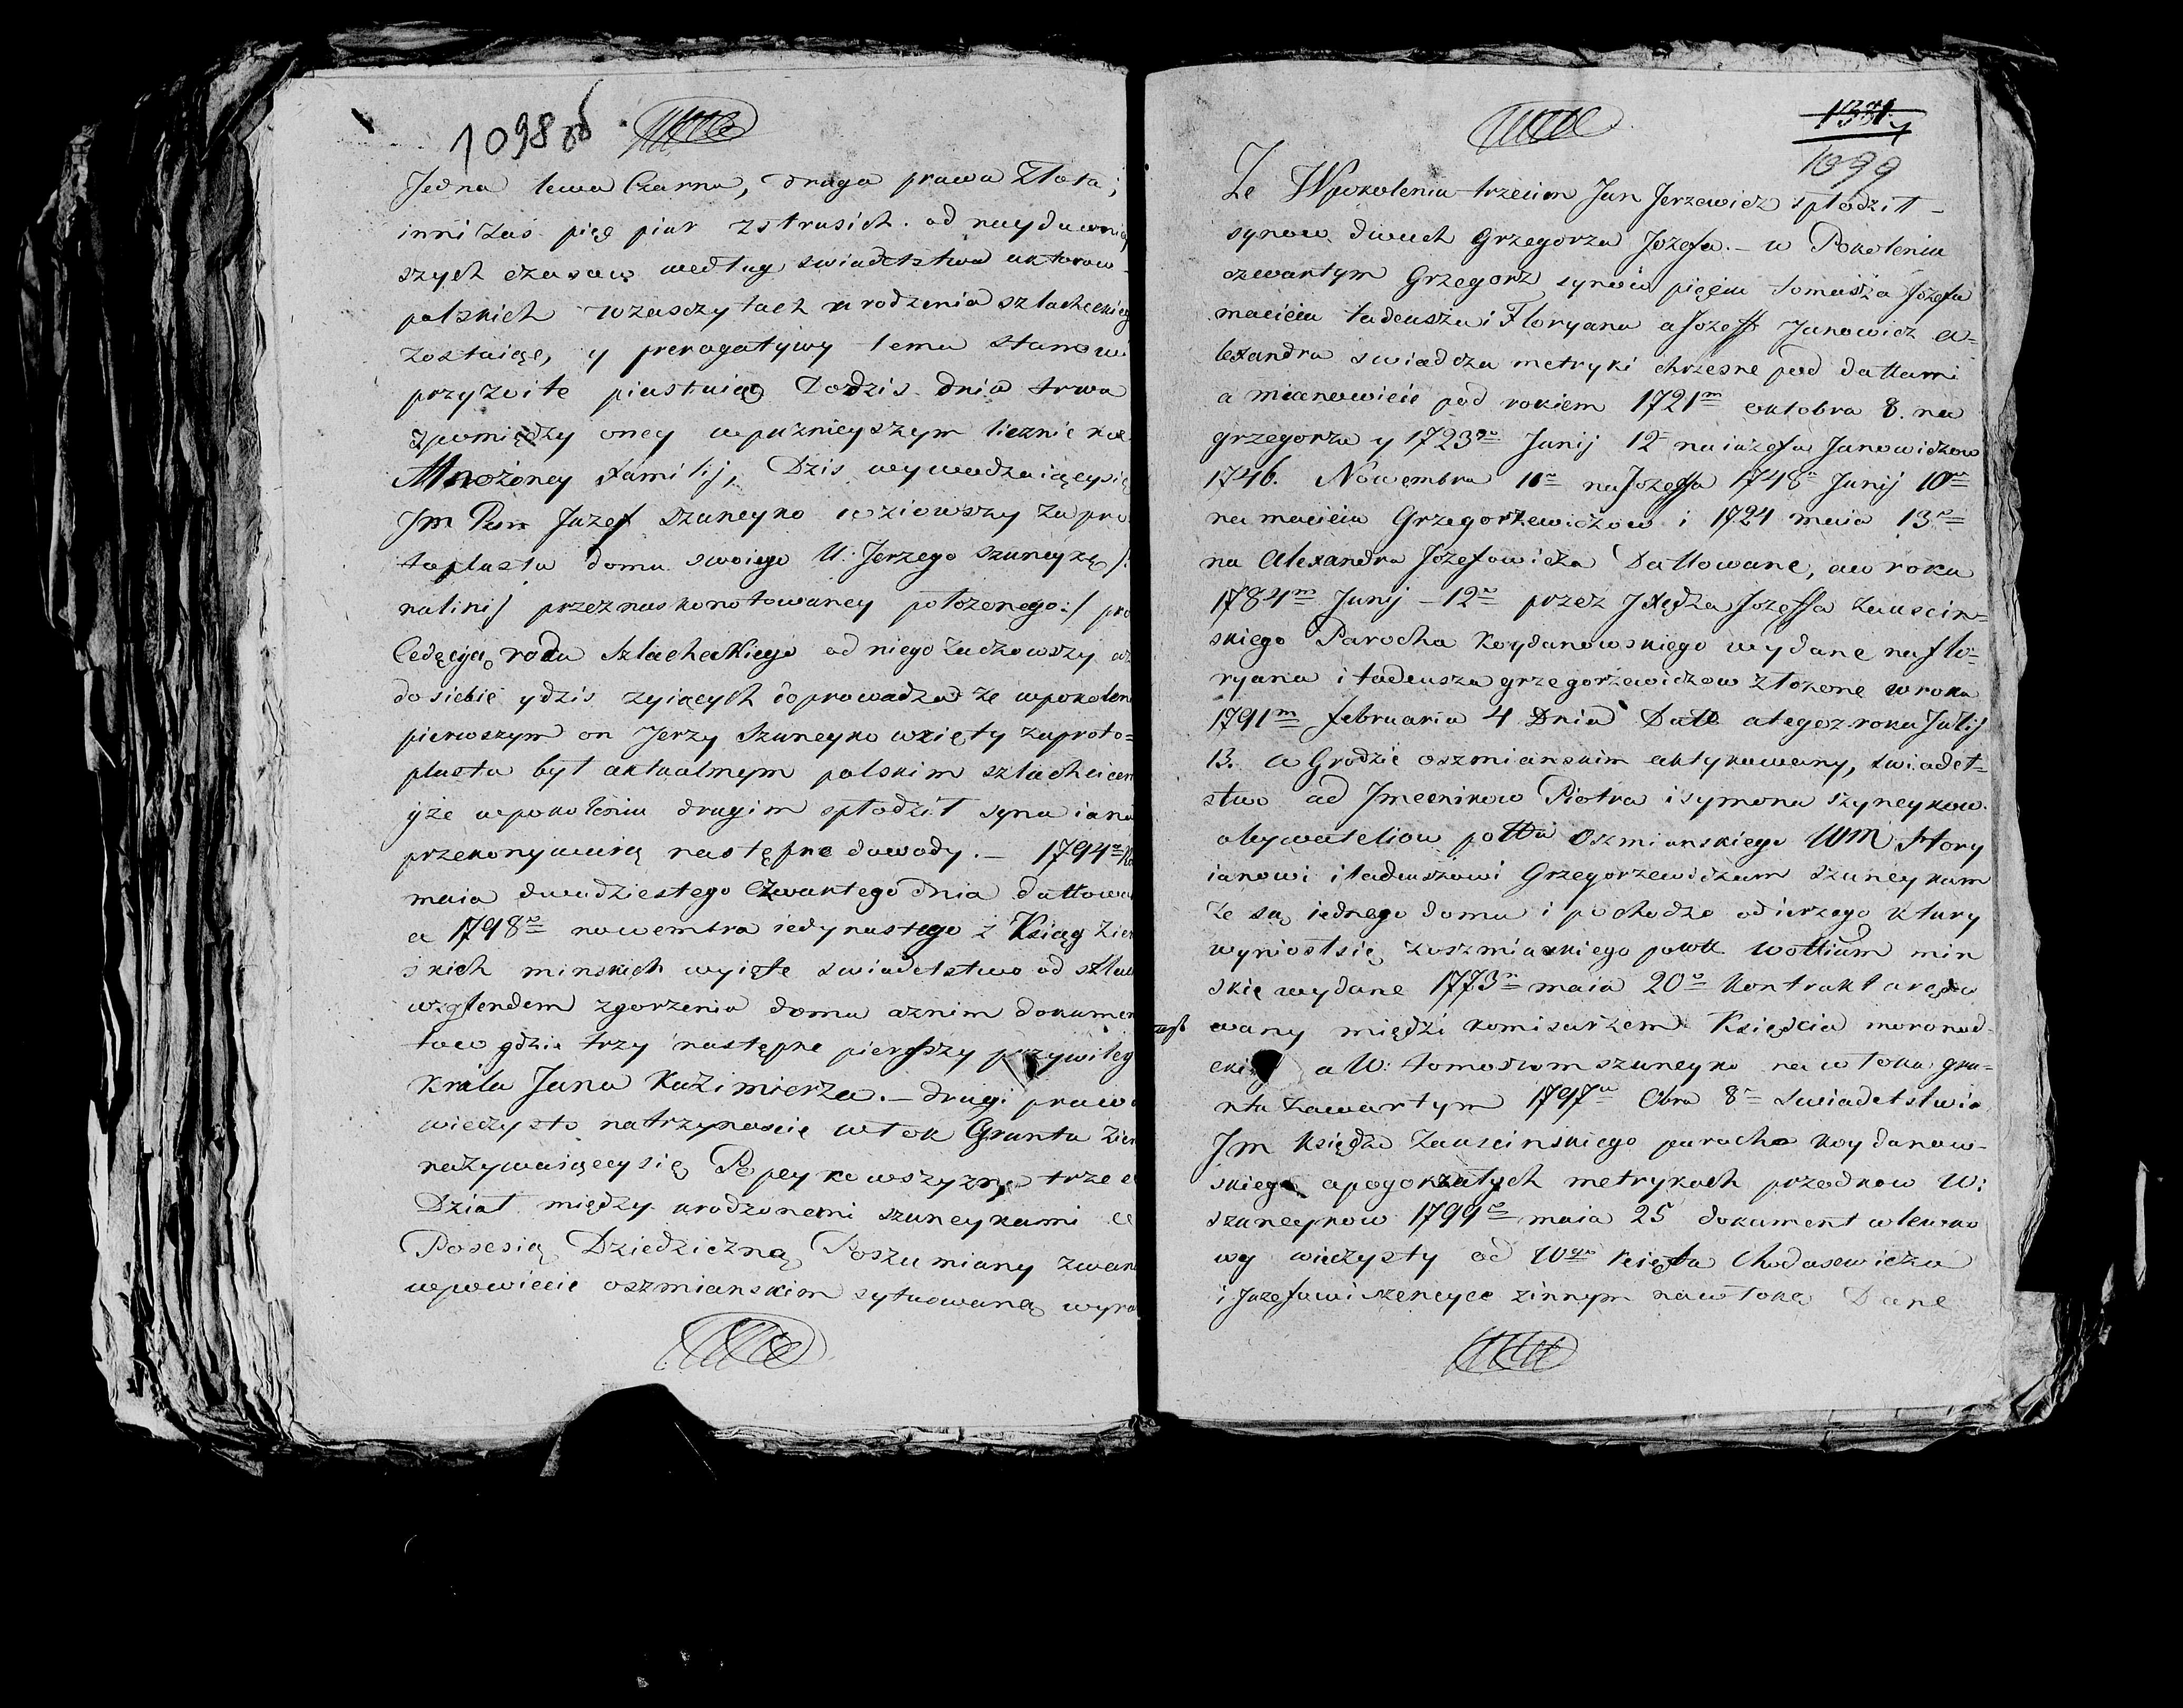 1098 об
Jedna lewa Czarna, druga prawa Złota;
inni zas pięć piur zstrusich od naydawniey
szych czasow według swiadetstwa autorow
polskich wzaszczytach urodzenia szlacheckieg
zostaiąc, y prerogatywy temu stanowi
przyzwite piastuiąc Dodzis dnia trwa
zpomiędzy oney wpuznieyszym licznie roz
Mnożoney Familij, Dzis wywodzaiącysię
Jm Pan Juzef Szuneyko wziowszy za pro
toplasta domu swoiego U: Jerzego Szuneykę /:
nalinij przeznaskonotowaney położonego:/ pro
Cedęcyą rodu Szlacheckiego od niego zaczowszy aż
dosiebie ydzis zyiących doprowadzał że wpokolen
pierwszym on Jerzy Szuneyko wzięty zaproto=
plasta był aktualnym polskim szlachcicem
yże wpokoleniu drugim spłodził syna iana
przekonywuią następne dowody. — 1794
maia dwudziestego Czwartego dnia dattowa
a 1798 nowembra iedynastego z Ksiąg Ziem
skich minskich wyięte swiadetstwo od szlach
względem zgorzenia domu aznim dokumen
tow gdzie trzy następne pierszy przywileg
Krola Jana Kazimierza. — drugi prawo
wieczysto natrzynascie włok Gruntu Ziem
nazywaiącysię Popeykowszyzną trzeci
Dział między urodzonemi szuneykami
Posesią Dziedziczną Poszumiany zwan
wpowiecie oszmianskim sytuowaną wyra
1331
1099
Że Wpokoleniu trzecim Jan Jerzewicz spłodził
synow dwuch Grzegorza Jozefa. — w Pokoleniu
czwartym Grzegorz synow pięciu tomasza Jozefa
macieia tadeusza i Floryana a Jozeff Janowicz a=
lexandra swiadcza metryki chrzesne pod dattami
a mianowicie pod rokiem 1721m oktobra 8. na
grzegorza y 1723go Junij 12 na iozefa Janowiczow
1746. Nowembra 11 na Jozeffa 1748 Junij 10
na macieia Grzegorzewiczow i 1724 maia 13
na Alexandra Jozefowicza Dattowane, aw roku
1784m Junij — 12 przez Jxiędza Jozeffa zauscin=
skiego Parocha Koydanowskiego wydane na flo=
ryana i tadeusza grzegorzewiczow złożone w roku
1791m februaria 4 Dnia Datt ategoz roku Julij
13. w Grodzie oszmianskim aktykowany, swiadet=
stwo od Jmecnikow Piotra i symona szyneykow.
obywateliow pottu Oszmianskiego WM flory
ianowi itadeuszowi Grzegorzewiczam szuneykam
że są iednego domu i pochodzo odierzego ktury
wyniosłsię zoszmianskiego powtt wottium min
skie wydane 1773 maia 20 Kontrakt aręndo
wany między komisarzem Księdcia
a W: tomoszom szuneyko na włoka gru=
ntu zawartym 1797 8 swiadetstwo
Jm księdza zauscinskiego parocha koydanow-
skiego apogorzałych metrykach przodkow W:
szuneykow 1799 maia 25 dokument wlewko
wy wieczysty od WJmo Chodasewicza
i Juzefowi szeneyce zinnym nawłokę Dane